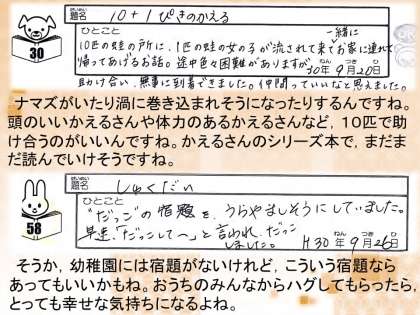 題名 10+1ぴきのかえる
30
ひとこと 一緒に
10匹の蛙の所に、1匹の蛙の女の子が流されて来てお家に連れて
帰ってあげるお話。途中色々困難がありますが 30年9月20日
ねん つき にち
助け合い、無事に到着できました。仲間っていいなと思えました。
ナマズがいたり渦に巻き込まれそうになったりするんですね。
頭のいいかえるさんや体力のあるかえるさんなど，10匹で助
け合うのがいいんですね。かえるさんのシリーズ本で，まだま
だ読んでいけそうですね。
題名 しゅくだい
58
ひとこと
"だっこ"の宿題を、うらやましそうにしていました。
早速、「だっこして～」と言われ、だっこ
ねん つき にち
しました。 H30年9月26日
そうか，幼稚園には宿題がないけれど，こういう宿題なら
あってもいいかもね。おうちのみんなからハグしてもらったら，
とっても幸せな気持ちになるよね。